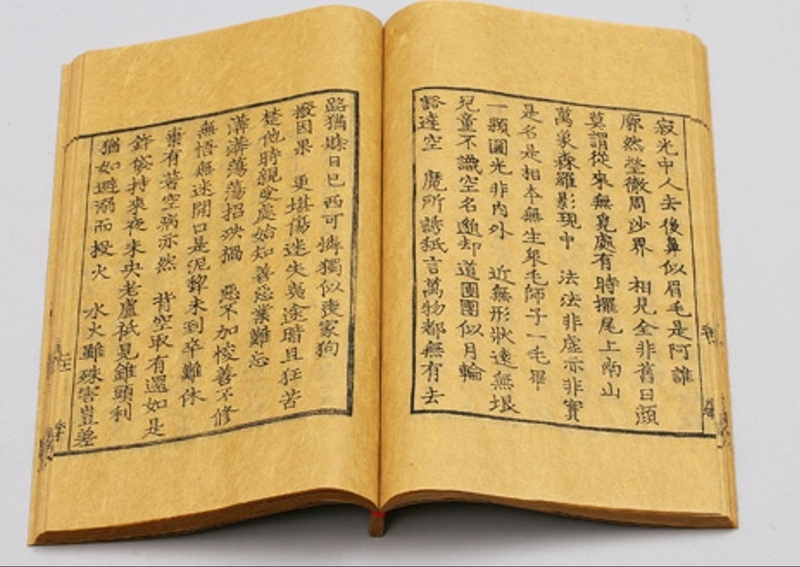 寂光中人去後鼻似眉毛是阿誰
廓然瑩徹周沙界 相見全非舊日顔
莫謂從來無覓處有時擺尾上南山
萬象森羅影現中 法法非虛亦非實
是名是相本無生衆毛師子一毛畢
一顆圓光非內外 近無形狀遠無垠
兒童不識空名邈却道團團似月輪
豁達空 魔所誘秖言萬物都無有去
路猶賖日已西可憐獨似喪家狗
撥因果 更堪傷迷失夷途暗且狂苦
楚他時親受處始知善惡業難忘
漭漭蕩蕩招殃禍 惡不加悛善不修
無悟無迷開口是泥犁未到卒難休
棄有著空病亦然 背空取有還如是
鉢袋持來夜未央老盧秖見錐頭利
猶如避溺而投火 水火雖殊害豈差